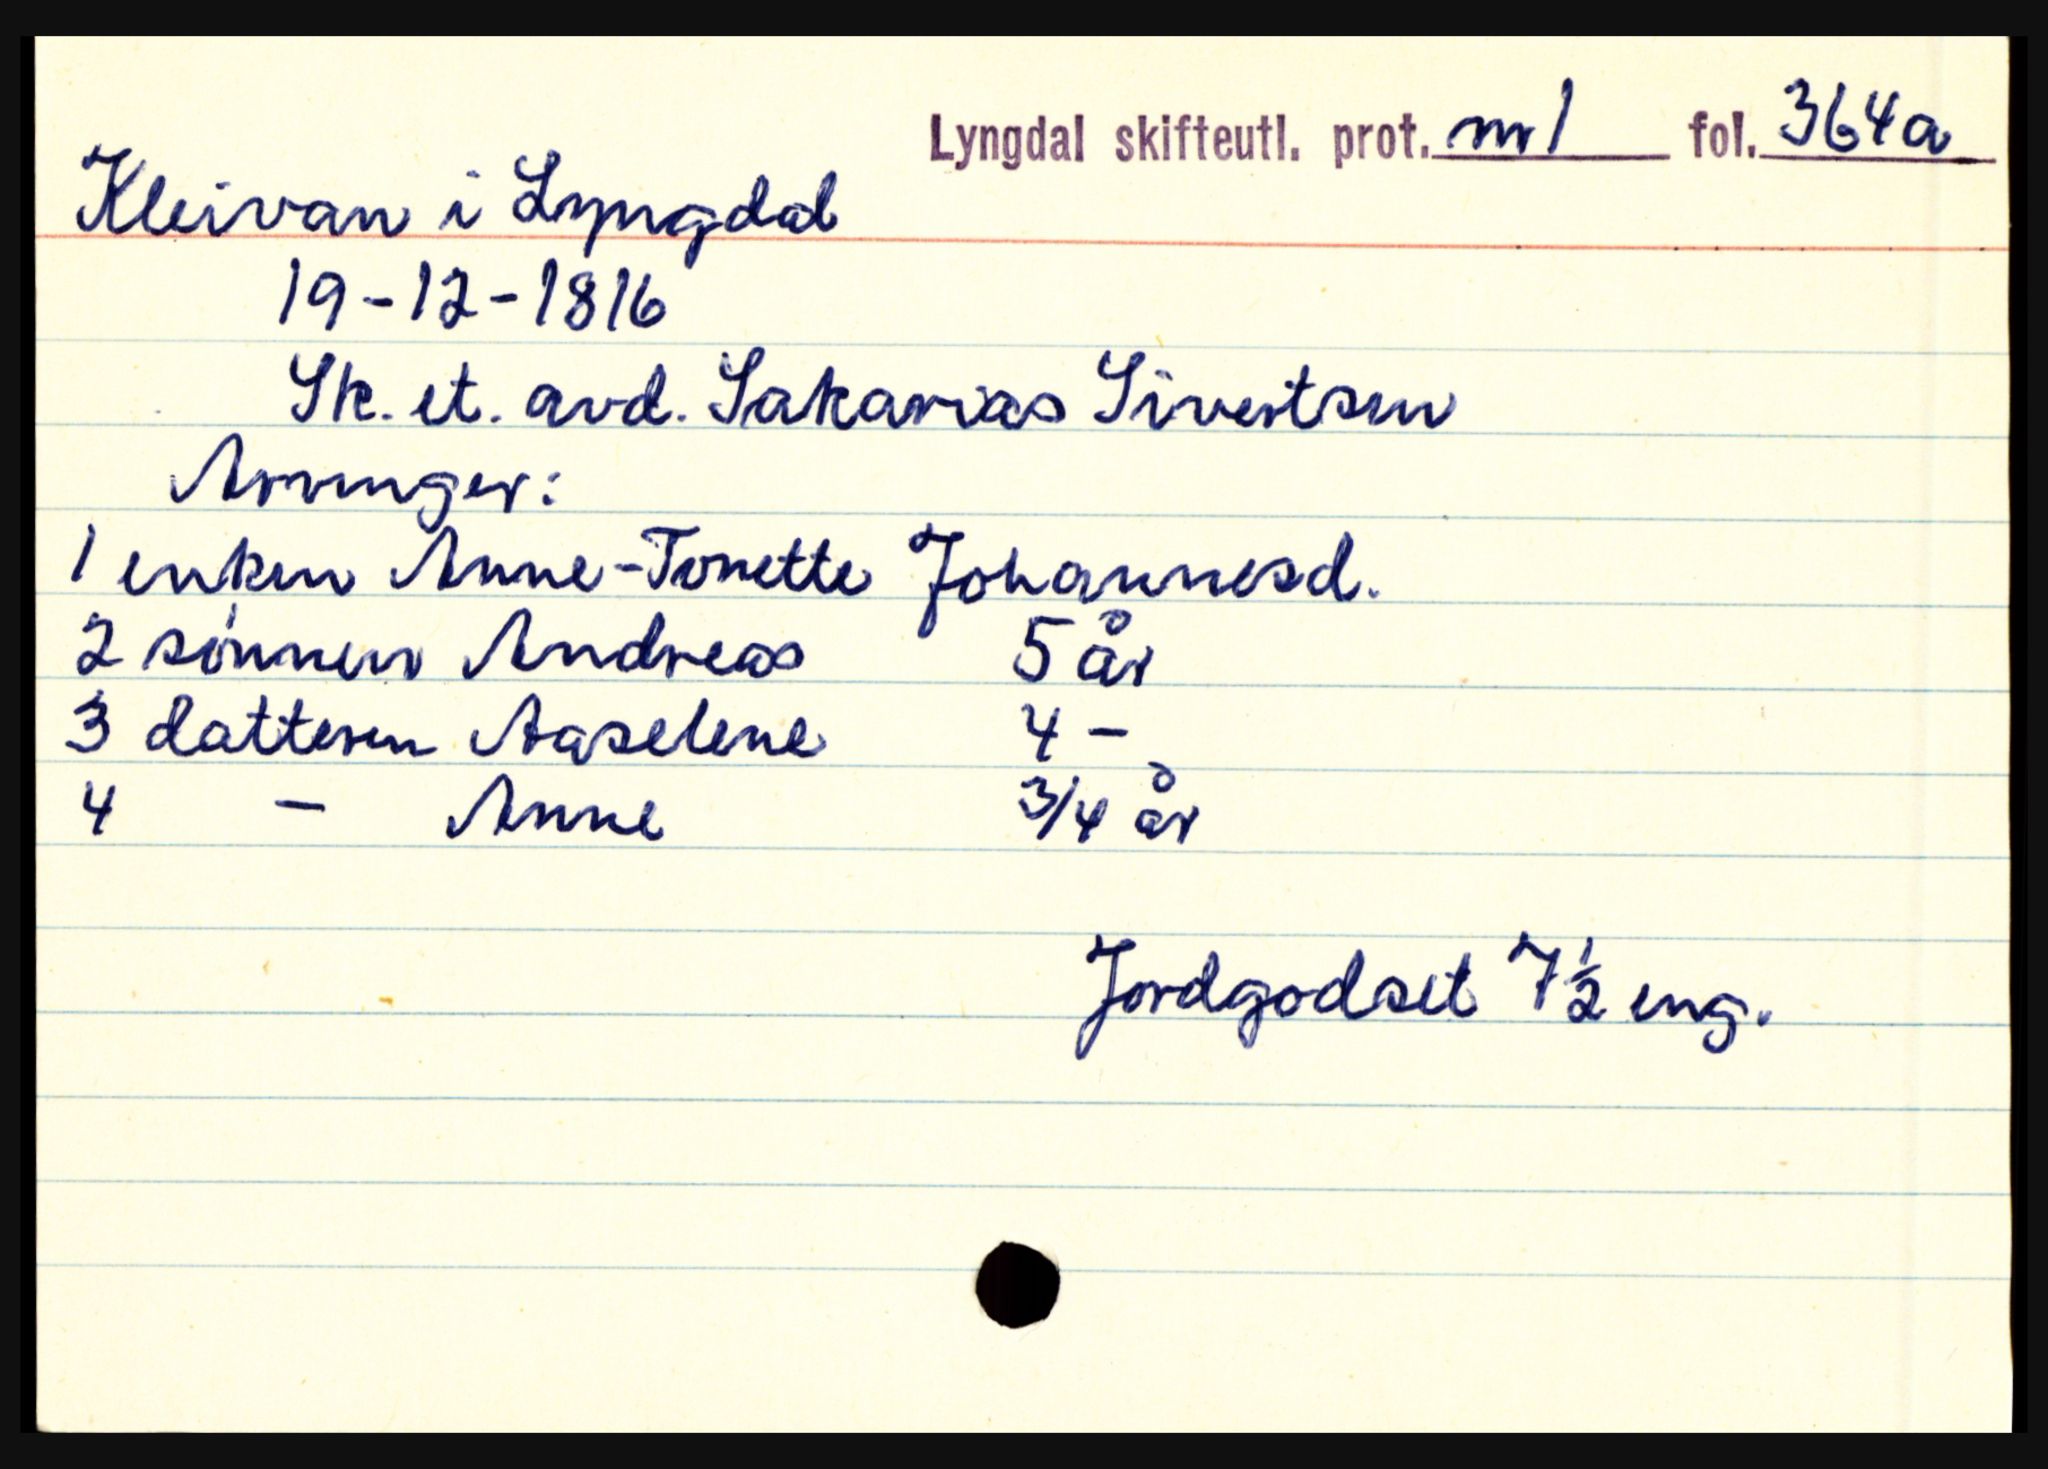 Lyngdal skifteutl. prot. nr 1 fol. 364a
Kleivan i Lyngdal
19-12-1816
Sk. et. avd. Sakarias Sivertsen
Arvinger:
1 enken Anne-Tonette Johannesd.
2 sønnen Andreas 5 år
3 datteren Aaselene 4 -
4 - Anne 3/4 år
Jordgodset 7 1/2 eng.